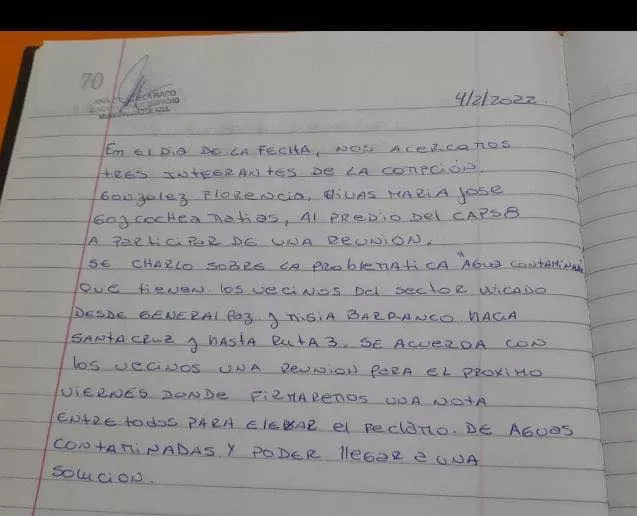 70
4/2/2022.
EN EL DIA DE LA FECHA, NOS ACERCAMOS
TRES INTEGRANTES DE LA COMICIÓN.
Gonzalez Florencia, MARIA Jose
Goycochea matias, AL PREDIO Del CAPS 8
A PARTICIPAR DE UNA REUNION.
SE CHARLO SOBRE LA PROBLEMATICA "AGUA
QUE tienen los vecinos Del sector UBICADO
DESDE GENERAL Paz y MISIA BARRANCO HACIA
SANTA CRUZ y HASTA RUTA 3. SE ACUERDA CON
los vecinos UNA REUNION PARA EL PROXIMO
VIERNES DONDE FIRMAREMOS UNA NOTA
ENTRE todos PARA ELEBAR el Reclamo. DE AGUAS
CONTAMINADAS Y PODER llegar a UNA
SOLUCION.